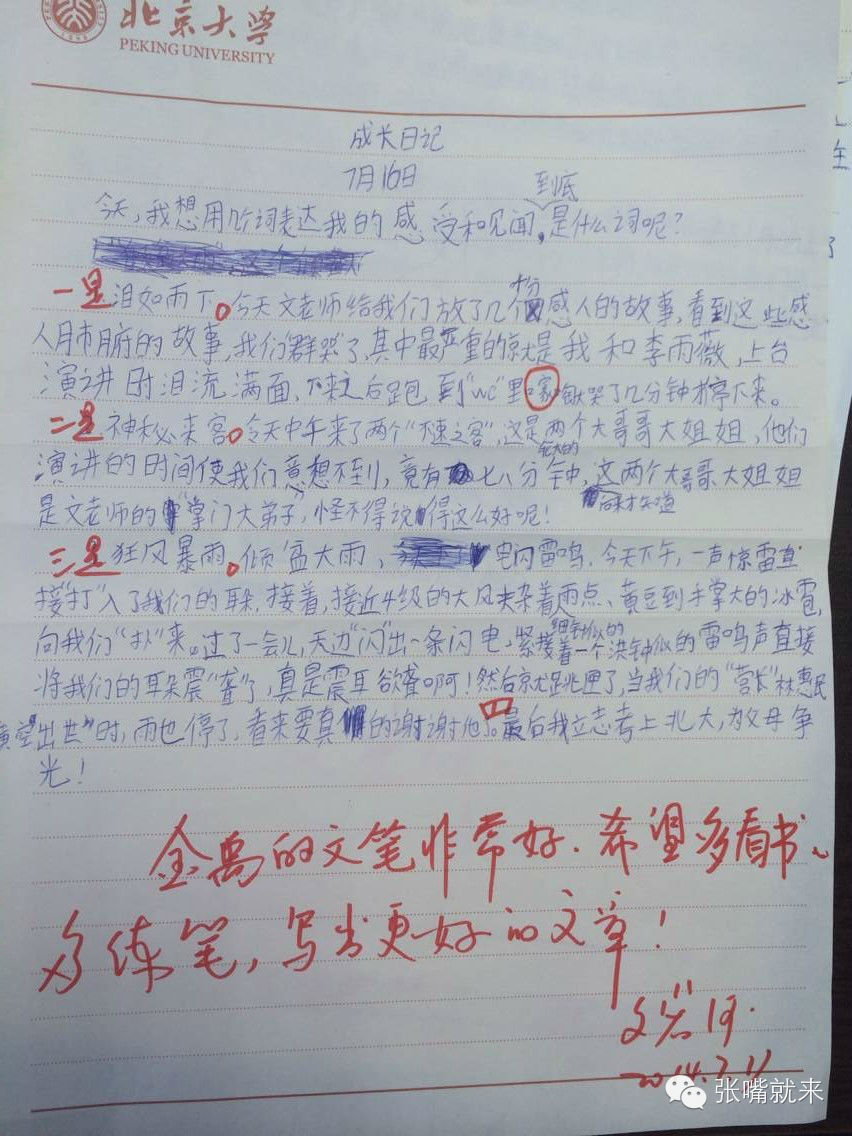 北京大学
PEKING UNIVERSITY
成长日记
7月16日
到底
今天,我想用几个词表达我的感受和见闻,是什么词呢?
十分
一是泪如雨下。今天文老师给我们放了几个感人的故事,看到这些感
人肺腑的故事,我们群哭了,其中最严重的就是我和李雨薇,上台
演讲时泪流满面,下来之后跑到"WC"里嚎啕哭了几分钟才停下来。
二是神秘来客。今天中午来了两个"不速之客",这是两个大哥哥大姐姐,他们
演讲的时间使我们意想不到,竟有七八分钟,这两个大哥哥大姐姐
后来才知道
是文老师的"掌门大弟子,怪不得说得这么好呢!
三是狂风暴雨。倾盆大雨、电闪雷鸣,今天下午,一声惊雷直
接"打"入了我们的耳朵,接着,接近4级的大风夹杂着雨点、黄豆到手掌大的冰雹,
向我们"扑"来。过了一会儿,天边"闪"出一条闪电,紧接着一个洪钟似的雷鸣声直接
将我们的耳朵震"聋"了,真是震耳欲聋啊!然后就跳闸了,当我们的"营长"林惠民
横空出世"时,雨也停了,看来要真的谢谢他了。四最后我立志考上北大,为父母争
光!
金禹的文笔非常好.希望多看书、
多练笔,写出更好的文章!
2014.7.
张嘴就来